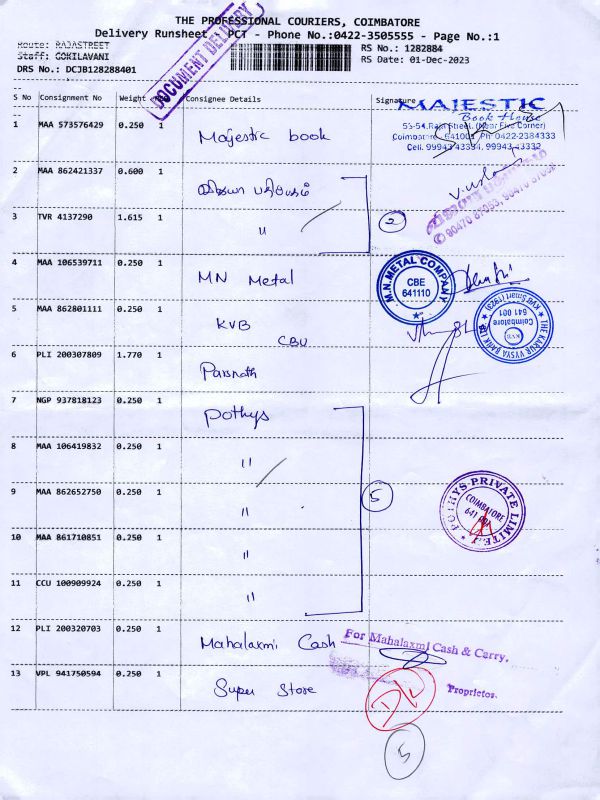 THE PROFESSIONAL COURIERS, COIMBATORE
Delivery Runsheet - PCT - Phone No.:0422-3505555 - Page No.:1
Route: RAJASTREET
RS No.: 1282884
Staff: GOKILAVANI
RS Date: 01-Dec-2023
DRS No.: DCJB128288401
DOCUMENT DELIVERY
S No Consignment No Weight Consignee Details Signature
MAJESTIC
Book House
53-54, Raja Street, (Near Five Corner)
Coimbatore 641001 Ph 0422-2384333
Cell. 99943 43334, 99943 43332
1 MAA 573576429 0.250 1 Majestic book
2 MAA 862421337 0.600 1
3 TVR 4137290 1.615 1 "
2
4 MAA 106539711 0.250 1 MN Metal
M.N.METAL COMPANY
CBE
641110
5 MAA 862801111 0.250 1 KVB CBU
THE KARUR VYSYA BANK LTD
KVB
Coimbatore
641 001
6 PLI 200307809 1.770 1 Parsnath
7 NGP 937818123 0.250 1 Pothys
8 MAA 106419832 0.250 1 "
9 MAA 862652750 0.250 1 "
5
POTHYS PRIVATE LIMITED
COIMBATORE
641 001
10 MAA 861710851 0.250 1 "
11 CCU 100909924 0.250 1 "
12 PLI 200320703 0.250 1 Mahalaxmi Cash
For Mahalaxmi Cash & Carry,
Proprietos.
13 VPL 941750594 0.250 1 Super Store
D/L
5